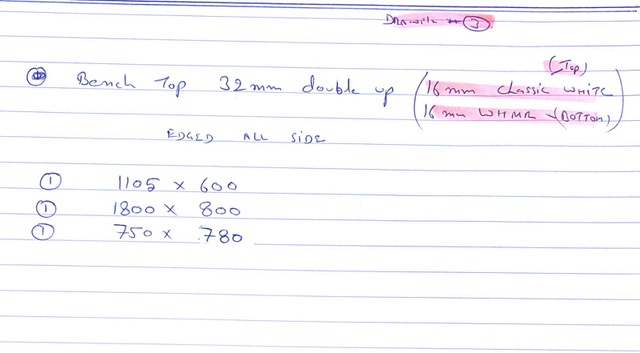 Drawing # 3
(Top)
Bench Top 32mm double up (16 mm classic WHITE
16 mm WHMR (BOTTOM))
EDGED ALL SIDE
① 1105 x 600
① 1800 x 800
① 750 x 780